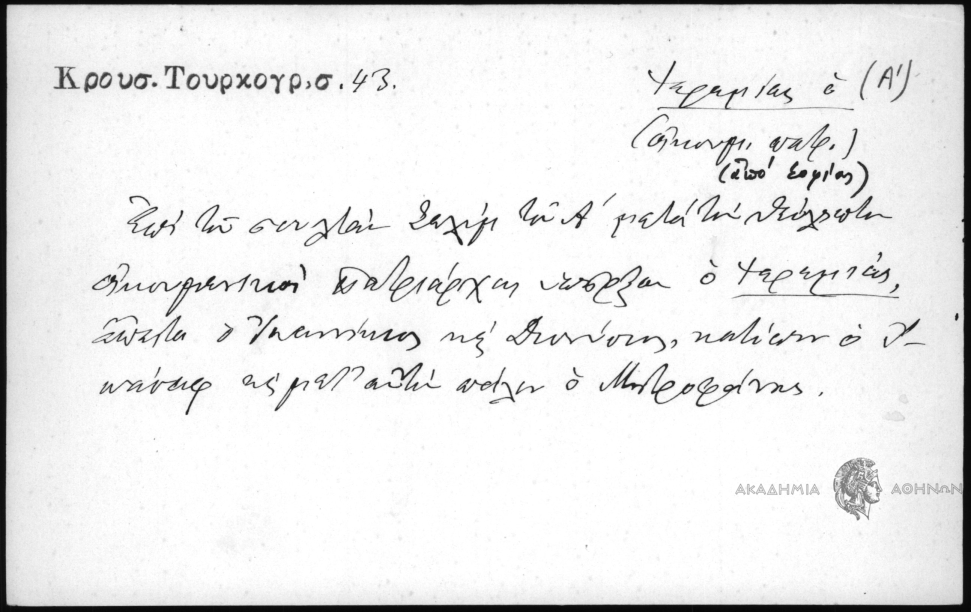 Κρουσ. Τουρκογρ, σ. 43.
Ἱερεμίας ὁ (Α')
(οἰκουμ. πατρ.)
(ἀπό Σοφίας)
Ἐπί τοῦ σουλτάν Σελήμ τοῦ Α' μετά τόν Θεόληπτον
οἰκουμενικοί Πατριάρχαι ὑπῆρξαν ὁ Ἱερεμίας,
ἔπειτα ὁ Ἰωαννίκιος καί Διονύσιος, κατόπιν ὁ Ἰ-
ωάσαφ καί μετ' αὐτόν πάλιν ὁ Μητροφάνης.
ΑΚΑΔΗΜΙΑ ΑΘΗΝΩΝ